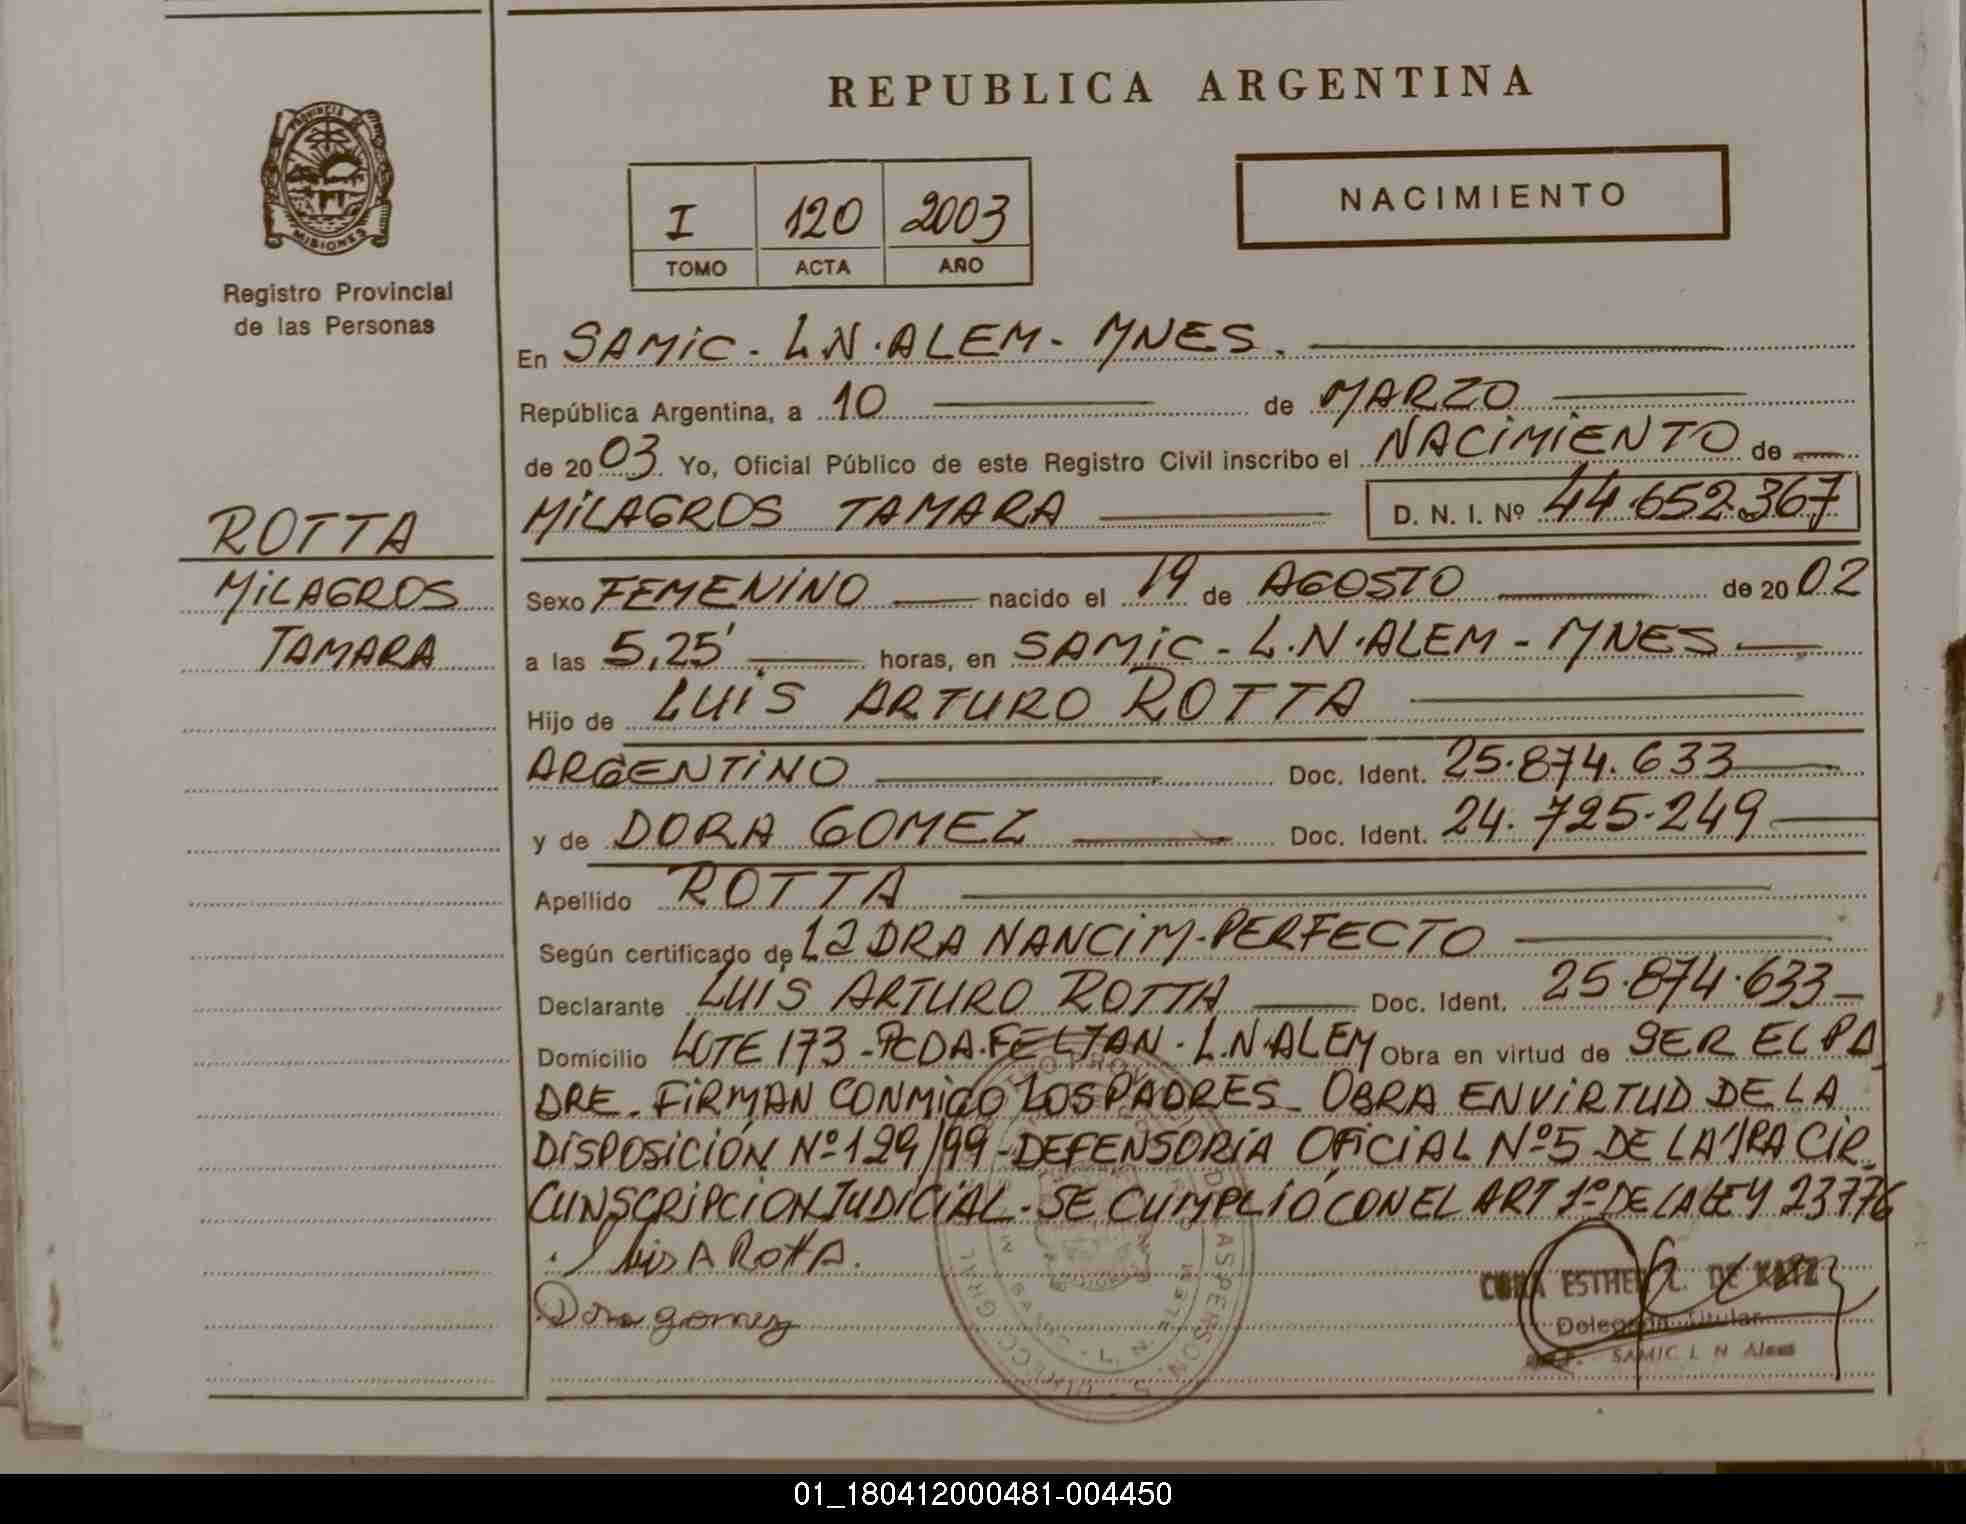 REPUBLICA ARGENTINA
PROVINCIA DE
MISIONES
Registro Provincial
de las Personas
I 120 2003
TOMO ACTA AÑO
NACIMIENTO
En SAMIC - L.N. ALEM - MNES.
República Argentina, a 10 de MARZO
de 2003 Yo, Oficial Público de este Registro Civil inscribo el NACIMIENTO de
MILAGROS TAMARA D. N. I. Nº 44.652.367
ROTTA
MILAGROS
TAMARA
Sexo FEMENINO nacido el 19 de AGOSTO de 2002
a las 5,25' horas, en SAMIC - L.N. ALEM - MNES
Hijo de LUIS ARTURO ROTTA
ARGENTINO Doc. Ident. 25.874.633
y de DORA GOMEZ Doc. Ident. 24.725.249
Apellido ROTTA
Según certificado de La DRA NANCI M. PERFECTO
Declarante LUIS ARTURO ROTTA Doc. Ident. 25.874.633
Domicilio LOTE 173 - PCDA. FELTAN - L.N. ALEM Obra en virtud de SER EL PA
DRE. FIRMAN CONMIGO LOS PADRES - OBRA EN VIRTUD DE LA
DISPOSICIÓN Nº 129/99 - DEFENSORÍA OFICIAL Nº 5 DE LA 1RA CIR
CUNSCRIPCION JUDICIAL - SE CUMPLIÓ CON EL ART 1º DE LA LEY 23776
Luis A Rotta.
Dora gomez
ESTHER L. DE KATZ
Delegada Titular
SAMIC L N Alem
01_180412000481-004450